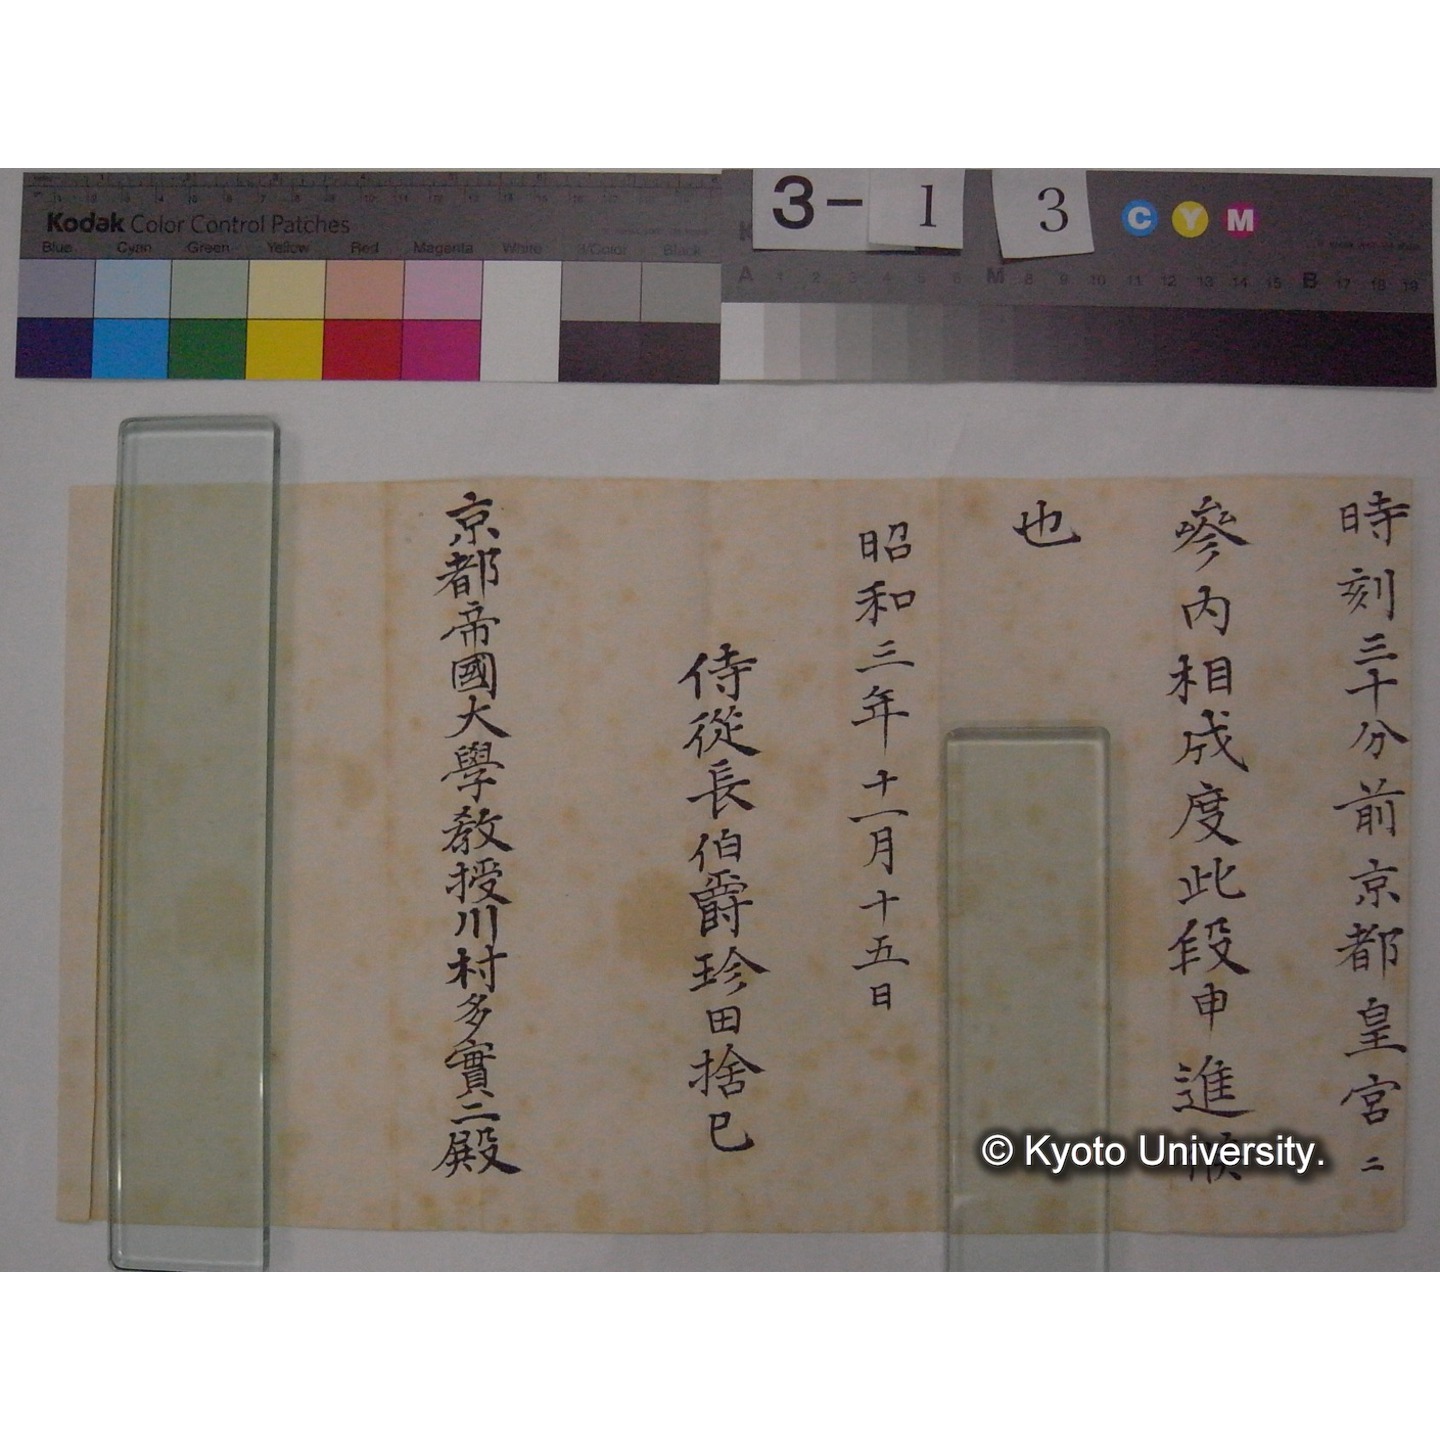 Kodak Color Control Patches
Blue Cyan Green Yellow Red Magenta White 3/Color Black
3-1 3
C Y M
A 1 2 3 4 5 6 M 8 9 10 11 12 13 14 15 B 17 18 19
時刻三十分前京都皇宮ニ
參内相成度此段申進候
也
昭和三年十一月十五日
侍從長伯爵珍田捨巳
京都帝國大學教授川村多實二殿
© Kyoto University.